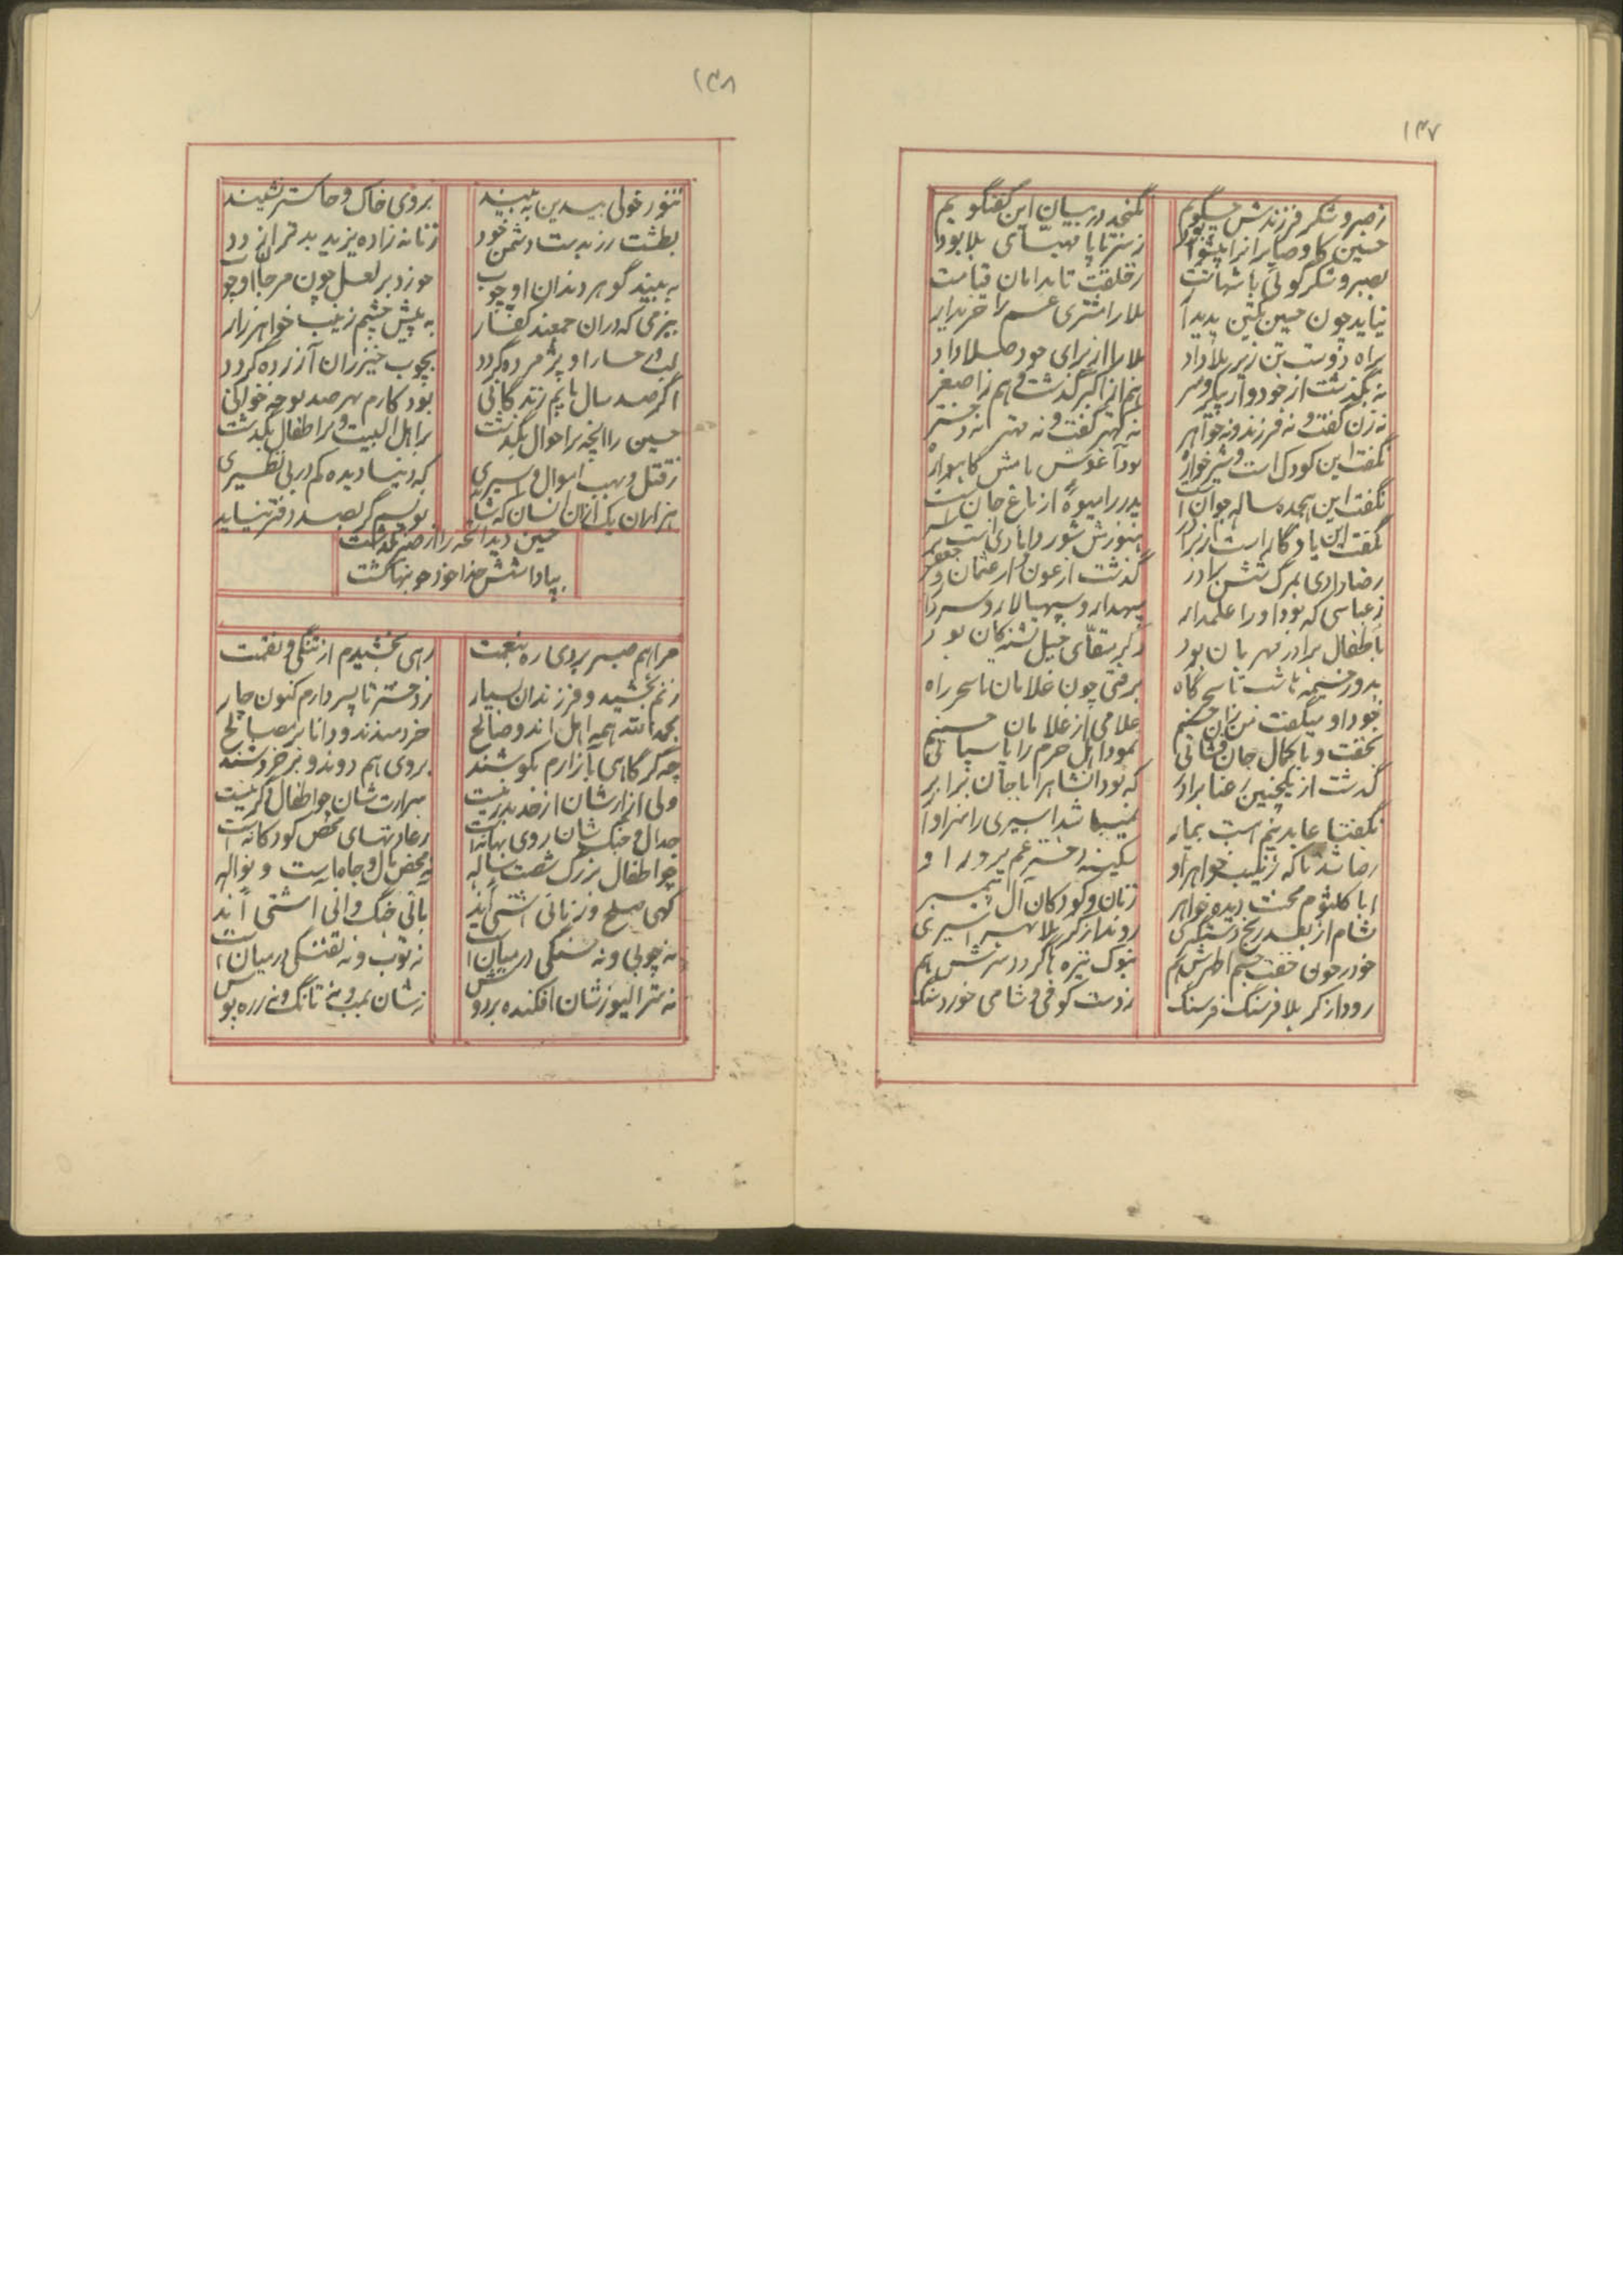 ۱۴۷
ز صبر و شکر فرزندش چگویم
نگنجد در بیان این گفتگویم
حسین کاو صابرانرا پیشوا بود
ز سر تا پا مهیای بلا بود
بصبر و شکر گوئی با شهامت
ز خلقت تا بدامان قیامت
نیاید چون حسین یکتن پدیدار
بلا را مشتری غم را خریدار
براه دوست تن زیر بلا داد
بلا را از برای خود صلا داد
نه بگذشت از خود و از پیکر و سر
هم از اکبر گذشت و هم ز اصغر
نه زن گفت و نه فرزند و نه خواهر
نه کهتر گفت و نه مهتر نه دختر
نگفت این کودک است و شیرخواره
بود آغوش مامش گاهواره
نگفت این هجده ساله جوان است
پدر را میوهٔ از باغ جان است
نگفت این یادگار است از برادر
هنوزش شور دامادی است بر سر
رضا دادی بمرگ شش برادر
گذشت از عون و از عثمان و جعفر
ز عباسی که بود او را علمدار
سپهدار و سپهسالار و سردار
باطفال برادر مهربان بود
دگر سقای خیل تشنگان بود
بدور خیمه ها شب تا سحرگاه
برفتی چون غلامان اسحر راه
بخود او میگفت من زان حسینم
غلامی از غلامان حسینم
بخفت و با کمال جان فشانی
نمود اهل حرم را پاسبانی
گذشت از یکچنین رعنا برادر
که بود آنشاه را با جان برابر
نگفتا عابدینم است بیمار
نمیباشد اسیری را سزاوار
رضا شد تا که زینب خواهر او
سکینه دختر غم پرور او
ابا کلثوم محنت دیده خواهر
زنان و کودکان آل پیمبر
بشام از بعد رنج دستگیری
روند از کربلا بهر اسیری
خود در خون خفت جسم اطهرش هم
بنوک نیزه ها گردد سرش هم
رود از کربلا فرسنگ فرسنگ
ز دست کوفی و شامی خورد سنگ
۱۴۸
تنور خولی بیدین به بیند
بروی خاک و خاکستر نشیند
بطشت زر بدست دشمن خود
زنازاده یزید بدتر از دد
به بیند گوهر دندان او چوب
خورد بر لعل چون مرجان او چوب
ببزمی که در آن جمعند کفار
به پیش چشم زینب خواهر زار
لب و رخسار او پژمرده گردد
بچوب خیزران آزرده گردد
اگر صد سال یابم زندگانی
بود کارم بهر صد نوحه خوانی
حسین را آنچه بر احوال بگذشت
بر اهل البیت و بر اطفال بگذشت
ز قتل و نهب اموال و اسیری
که دنیا دیده کم در بی نظیری
هزاران یک از آن انسان که شاید
نویسم گر بصد دفتر نیاید
حسین دید آنچه را از صبر بگذشت
بپاداشش خدا خونخواه گشت
مرا هم صبر بردی ره بنعمت
رهی بخشیدم از تنگی و نقمت
زنم بخشید و فرزندان بسیار
ز دختر تا پسر دارم کنون چار
بحمدالله همه اهل اند و صالح
خردمندند و دانا بر مصالح
چه گر گاهی بآزارم بکوشند
بروی هم دوند و برخروشند
ولی آزارشان از حد بدر نیست
شرارتشان چو اطفال دگر نیست
جدال و جنگ شان روی بهانه است
ز عادتهای محض کودکانه است
چو اطفال بزرگ شصت ساله
نه محض مال و جاماست و نواله
گهی صلح و زمانی آشتی اند
بآنی جنگ و آنی آشتی اند
نه چوبی و نه سنگی در میان است
نه توپ و نه تفنگی در میان است
نه مترالیوزشان افکنده بر دوش
نه شان بمب و نه تانگ و نه زره پوش